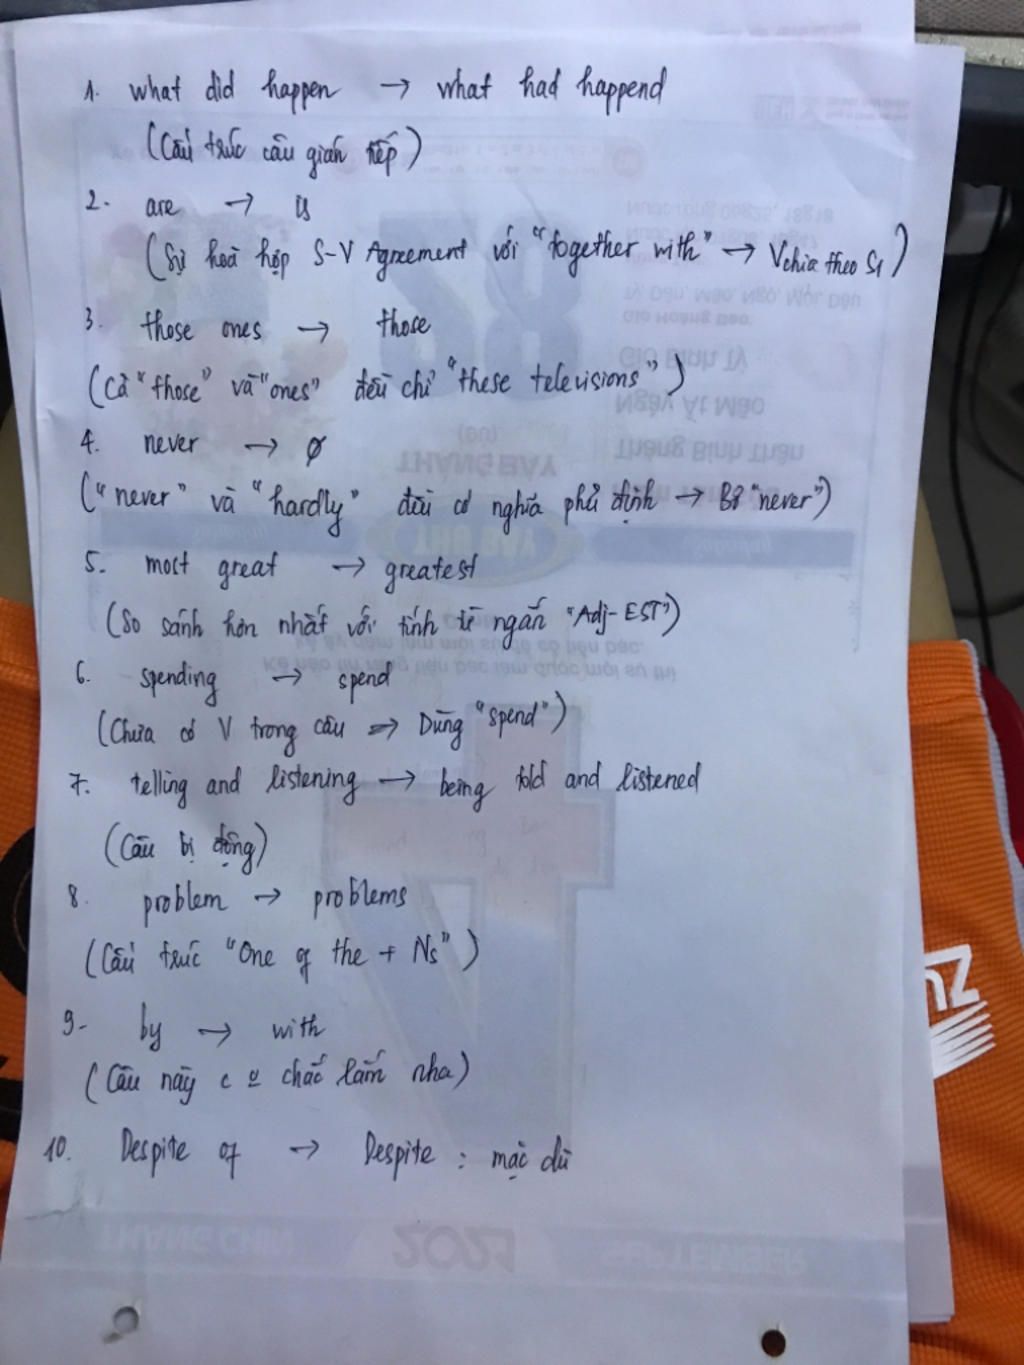 1. what did happen → what had happend
(Cấu trúc câu gián tiếp)
2. are → is
(Sự hoà hợp S-V Agreement với "together with" → Vchia theo S1)
3. those ones → those
(Cả "those" và "ones" đều chỉ "these televisions")
4. never → ∅
("never" và "hardly" đều có nghĩa phủ định → Bỏ "never")
5. most great → greatest
(So sánh hơn nhất với tính từ ngắn "Adj-EST")
6. spending → spend
(Chưa có V trong câu => Dùng "spend")
7. telling and listening → being told and listened
(Câu bị động)
8. problem → problems
(Cấu trúc "One of the + Ns")
9- by → with
(Câu này c o chắc lắm nha)
10. Despite of → Despite : mặc dù
THÁNG CHÍN 2021 SEPTEMBER